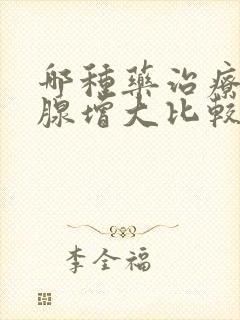 哪種藥治療
腺增大比較
李全福